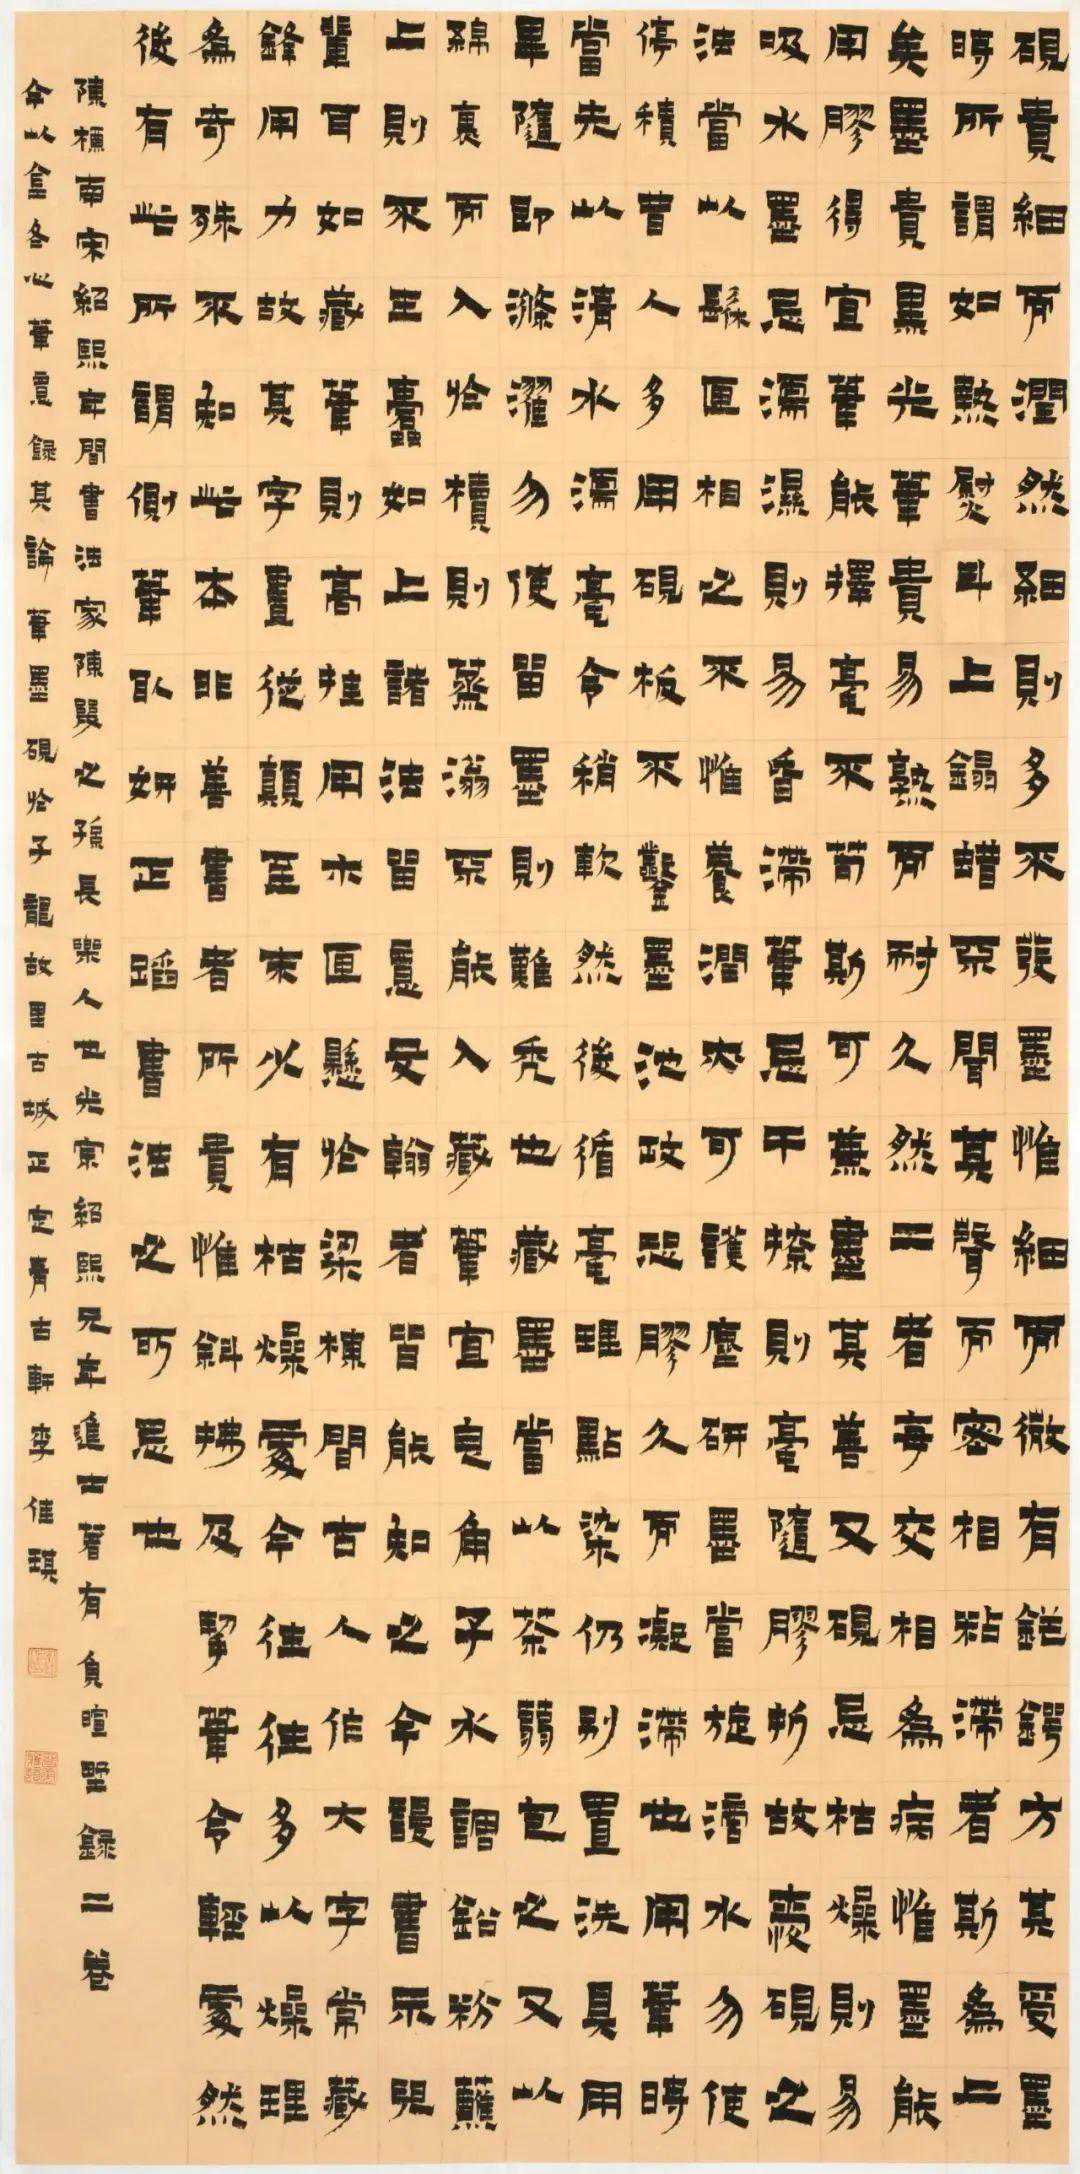 硯貴細而潤然細則多不發墨惟細而微有鋩鍔方其受墨
時所謂如熱熨斗上鎾蠟不聞其聲而密相粘滯者斯為上
矣墨貴黑光筆貴易熟而耐久然二者每交相為病惟墨能
用膠得宜筆能擇毫不苟斯可兼盡其善又硯忌枯燥則易
吸水墨忌濡濕則易昏滯筆忌干撩則毫隨膠折故凌硯之
法當以髹匣相之不惟養潤墨亦可護塵研墨當旋滴水勿使
停積昔人多用硯板不鑿墨池政恐膠久而凝滯也用筆時
當先以清水濡毫令稍軟然後循毫理點染仍別置洗具用
畢隨即滌濯勿使留墨則難禿也藏墨當以茶蒻包之又以
綿裹而入於櫝則蒸溽不能入藏筆宜良角子水調鉛粉蘸
上則不生蠹如上諸法留意安翰者皆能知之今謾書示兒
輩耳如藏筆則高挂用木匣懸於梁棟間古人作大字常藏
鋒用力故其字畫從顛至末少有枯燥處今往往多以燥理
為奇殊不知此本非善書者所貴惟斜拂及挈筆令輕處然
後有此所謂側筆取妍正蹈書法之所忌也
陳槱南宋紹熙年間書法家陳嘏之孫長樂人也光宗紹熙元年進士著有負暄野錄二卷
今以金冬心筆意錄其論筆墨硯於子龍故里古城正定青古軒李佳琪